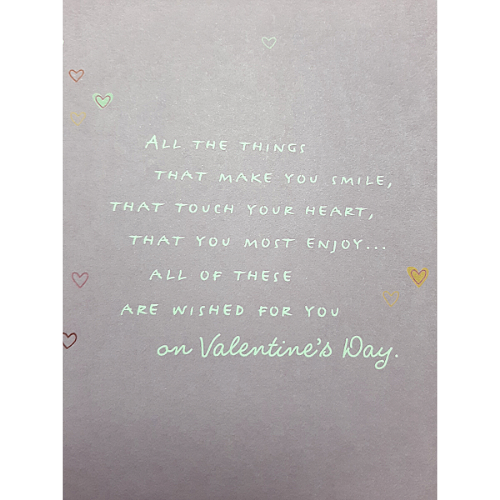 ALL THE THINGS
THAT MAKE YOU SMILE,
THAT TOUCH YOUR HEART,
THAT YOU MOST ENJOY...
ALL OF THESE
ARE WISHED FOR YOU
on Valentine's Day.